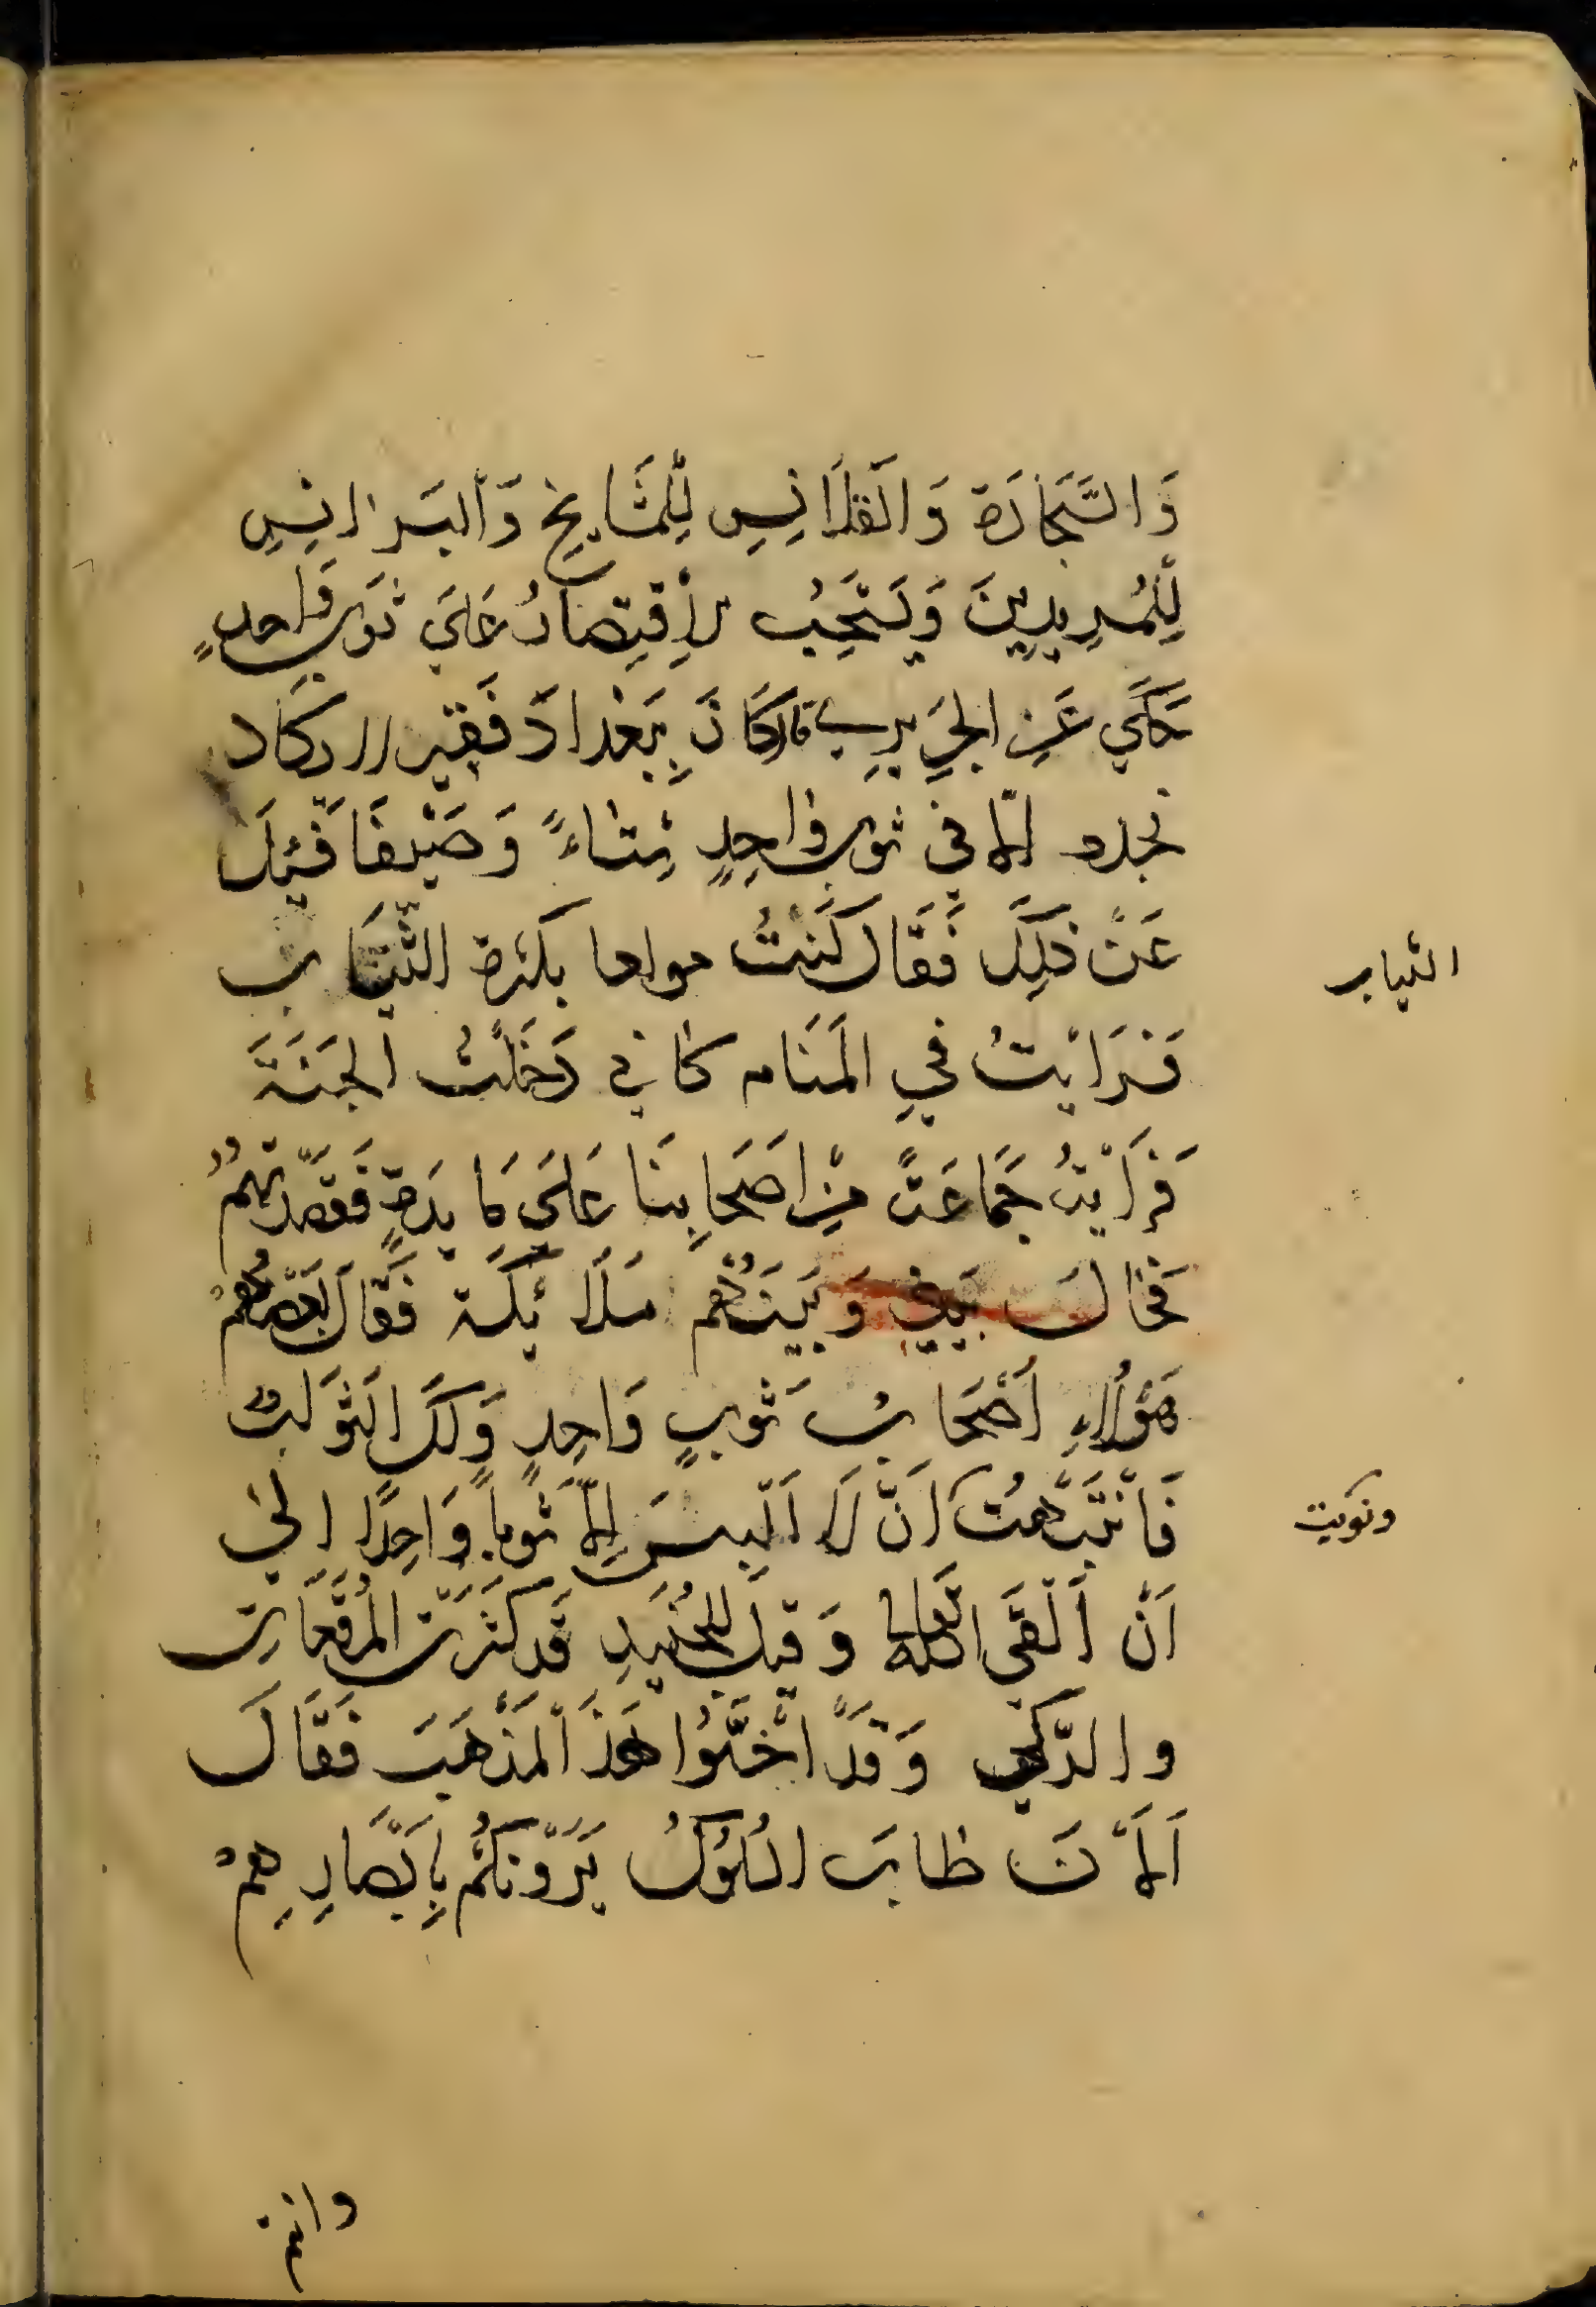 وَالسَّجَّادَة وَالْقَلَانِسِ لِلْمَشَايِخِ وَالْبَرَانِسِ
لِلْمُرِيدِينَ وَيَسْتَحِبُّ الْإِقْتِصَارُ عَلَى ثَوْبٍ وَاحِدٍ
حَكَى عَنِ الْجَرِيرِي قال كَانَ بِبَغْدَادَ فَقِير كاد
في ثوبٍ وَاحِدٍ شِتَاءً وَصَيْفًا فَسُئِلَ
عَنْ ذَلِكَ فَقَالَ كُنْتُ بكثرة الثِّيَابِ
الثياب
فَرَأَيْتُ فِي الْمَنَام كاني دَخَلْتُ الْجَنَّةَ
فَرَأَيْتُ جَمَاعَةً مِنْ أَصْحَابِنَا عَلَى مَايِدَةٍ فَقَصَدْتُهُمْ
فَحَالَ بَيْنِي وَبَيْنَهُم مَلَائِكَة فَقَالَ بَعْضُهُمْ
هَؤُلَاءِ أَصْحَابُ ثَوبٍ وَاحِدٍ وَلَكَ
فَانْتَبَهْتُ أَنْ لَا أَلْبِسَ إِلَّا ثَوباً وَاحِدًا الى
ونويت
اَنْ أَلْقَى الله تعالى وَقِيلَ لِلْجُنَيْدِ قَد كَثُرَتْ الْمُرَقَّعَات
و وَقَدْ هَذَ الْمَذْهَبَ فَقَالَ
اَلْآنَ طَابَ السُّلُوكُ يَرَوْنَكُمْ بِأَبْصَارِهِمْ
وانتم